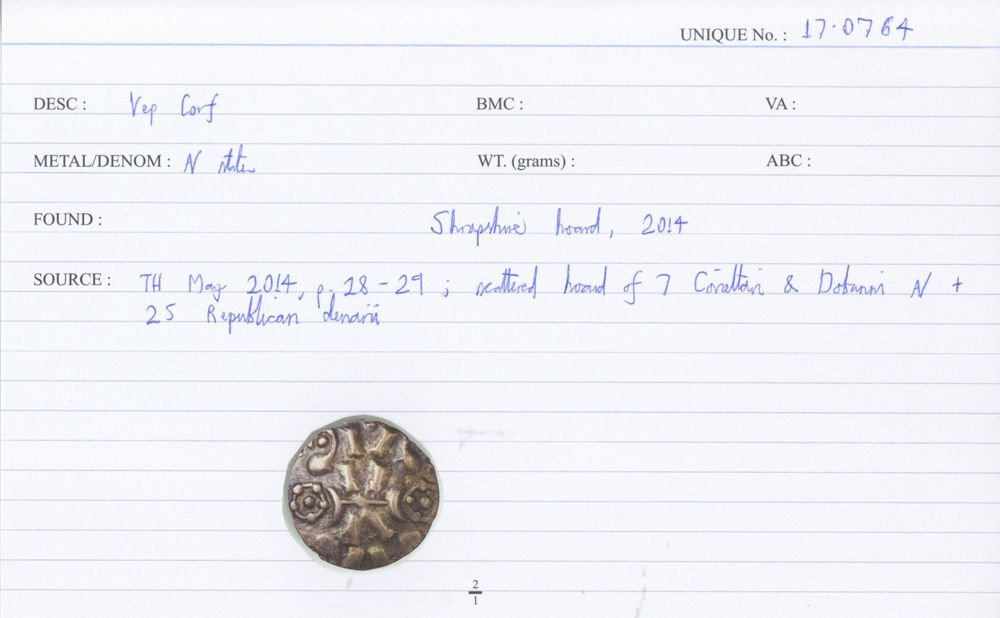 UNIQUE No. : 17·0764
DESC : Vep Corf BMC : VA :
METAL/DENOM : N stater WT. (grams) : ABC :
FOUND : Shropshire hoard, 2014
SOURCE : TH May 2014, p. 28-29 ; scattered hoard of 7 Corieltavi & Dobunni N +
25 Republican denarii
2
1